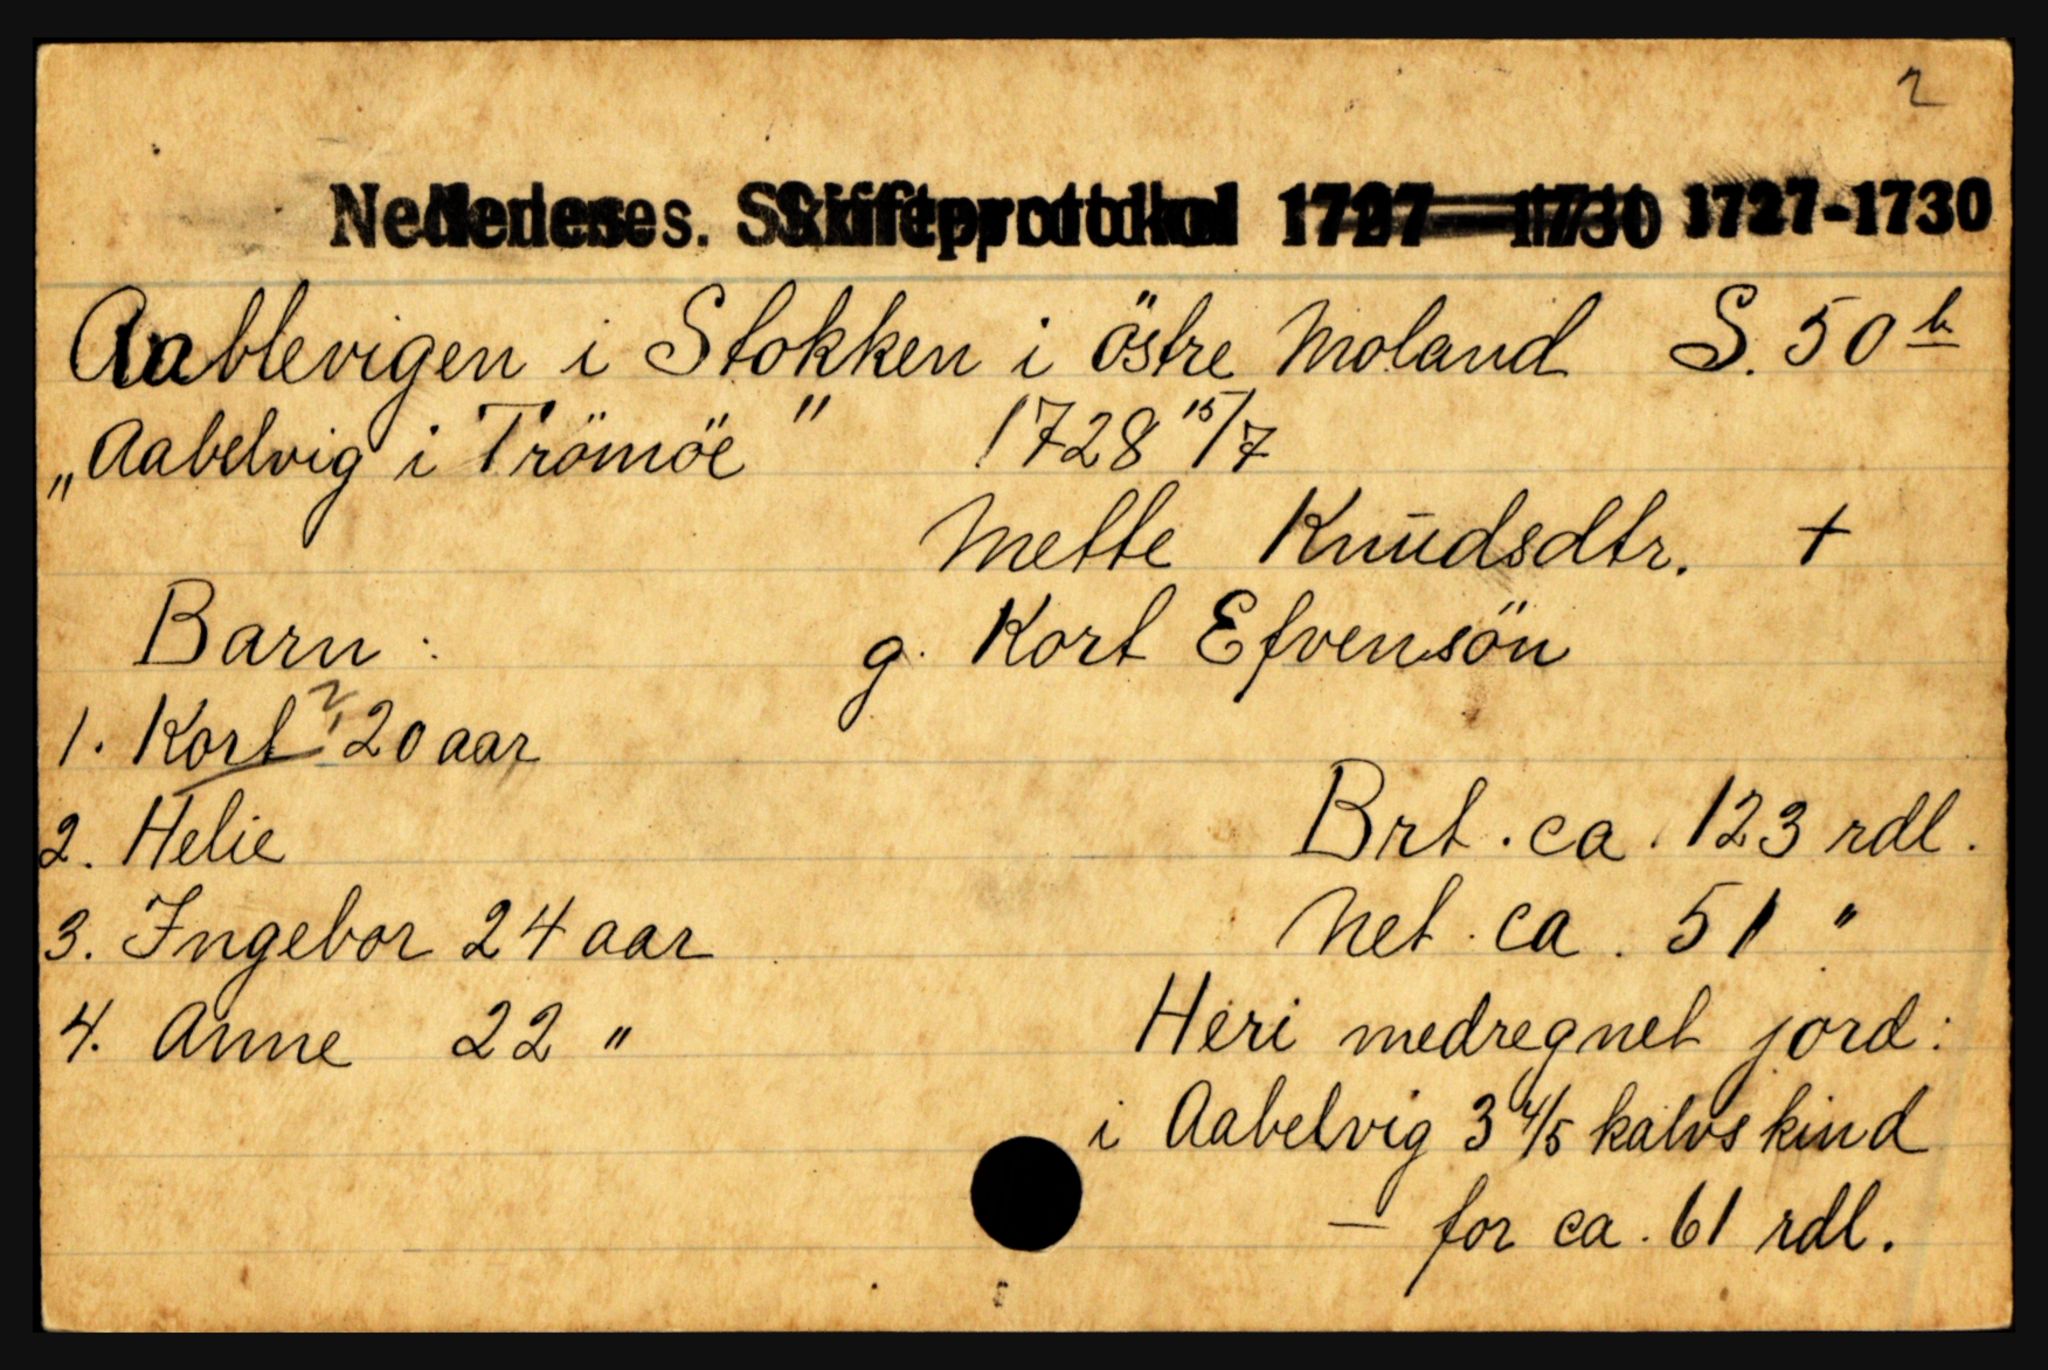 2
Nedenes. Skifteprotokol 1727—1730 1727-1730
Aablevigen i Stokken i östre Moland S. 50 b
„Aabelvig i Trömöe" 1728 15/7
Mette Knudsdtr. +
Barn: g. Kort Efvensön
1. Kort, 20 aar
2. Helie Brt. ca. 123 rdl.
3. Ingebor 24 aar Net. ca. 51 "
4. Anne 22 " Heri medregnet jord:
i Aabelvig 3 4/5 kalvskind
— for ca. 61 rdl.